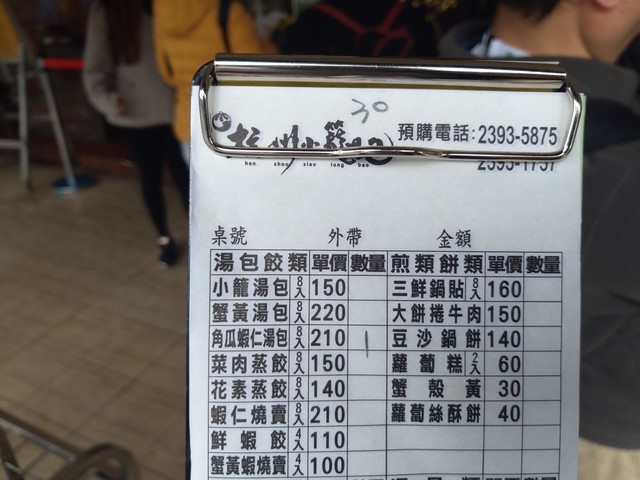 30
杭州小籠湯包
han. zhou xiao long. bao
預購電話:2393-5875
2393-1757
桌號 外帶 金額
湯包餃類 單價 數量 煎類餅類 單價 數量
小籠湯包 8入 150 三鮮鍋貼 8入 160
蟹黃湯包 8入 220 大餅捲牛肉 150
角瓜蝦仁湯包 8入 210 | 豆沙鍋餅 140
菜肉蒸餃 8入 150 蘿蔔糕 2入 60
花素蒸餃 8入 140 蟹殼黃 30
蝦仁燒賣 8入 210 蘿蔔絲酥餅 40
鮮蝦餃 4入 110
蟹黃蝦燒賣 4入 100